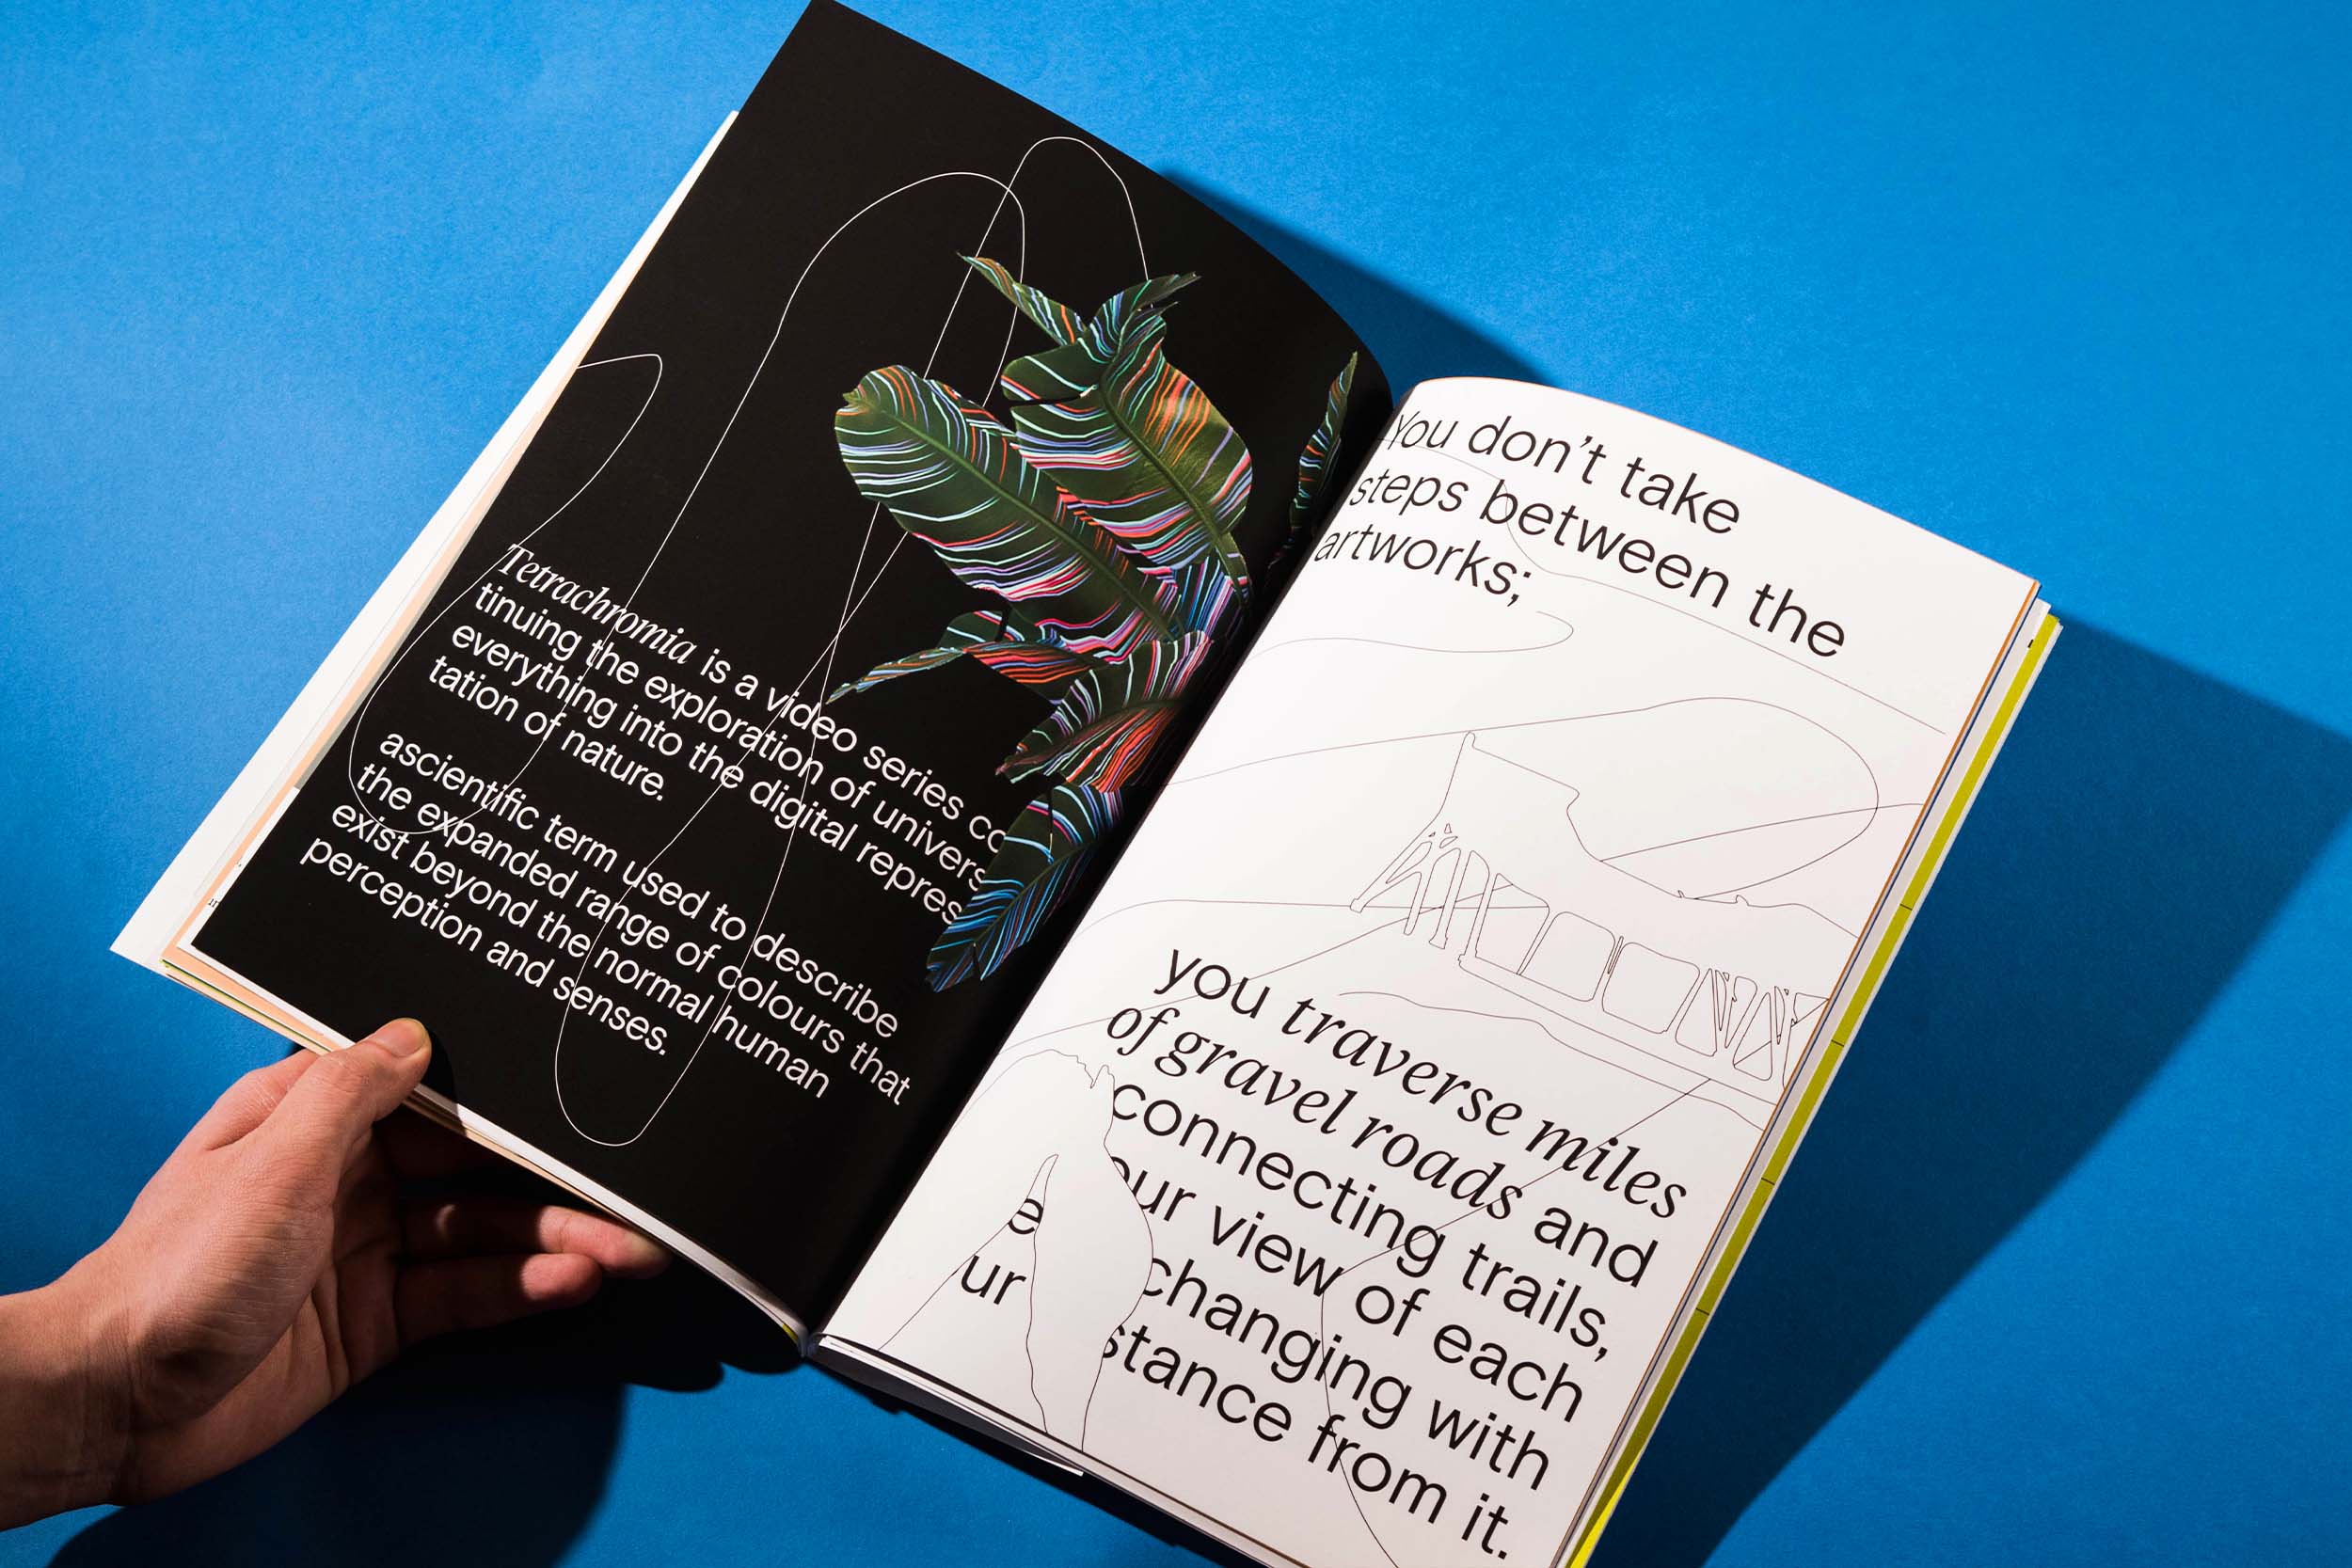 Tetrachromia is a video series co
tinuing the exploration of univers
everything into the digital repres
tation of nature.
ascientific term used to describe
the expanded range of colours that
exist beyond the normal human
perception and senses.
You don't take
steps between the
artworks;
you traverse miles
of gravel roads and
connecting trails,
our view of each
e changing with
ur stance from it.